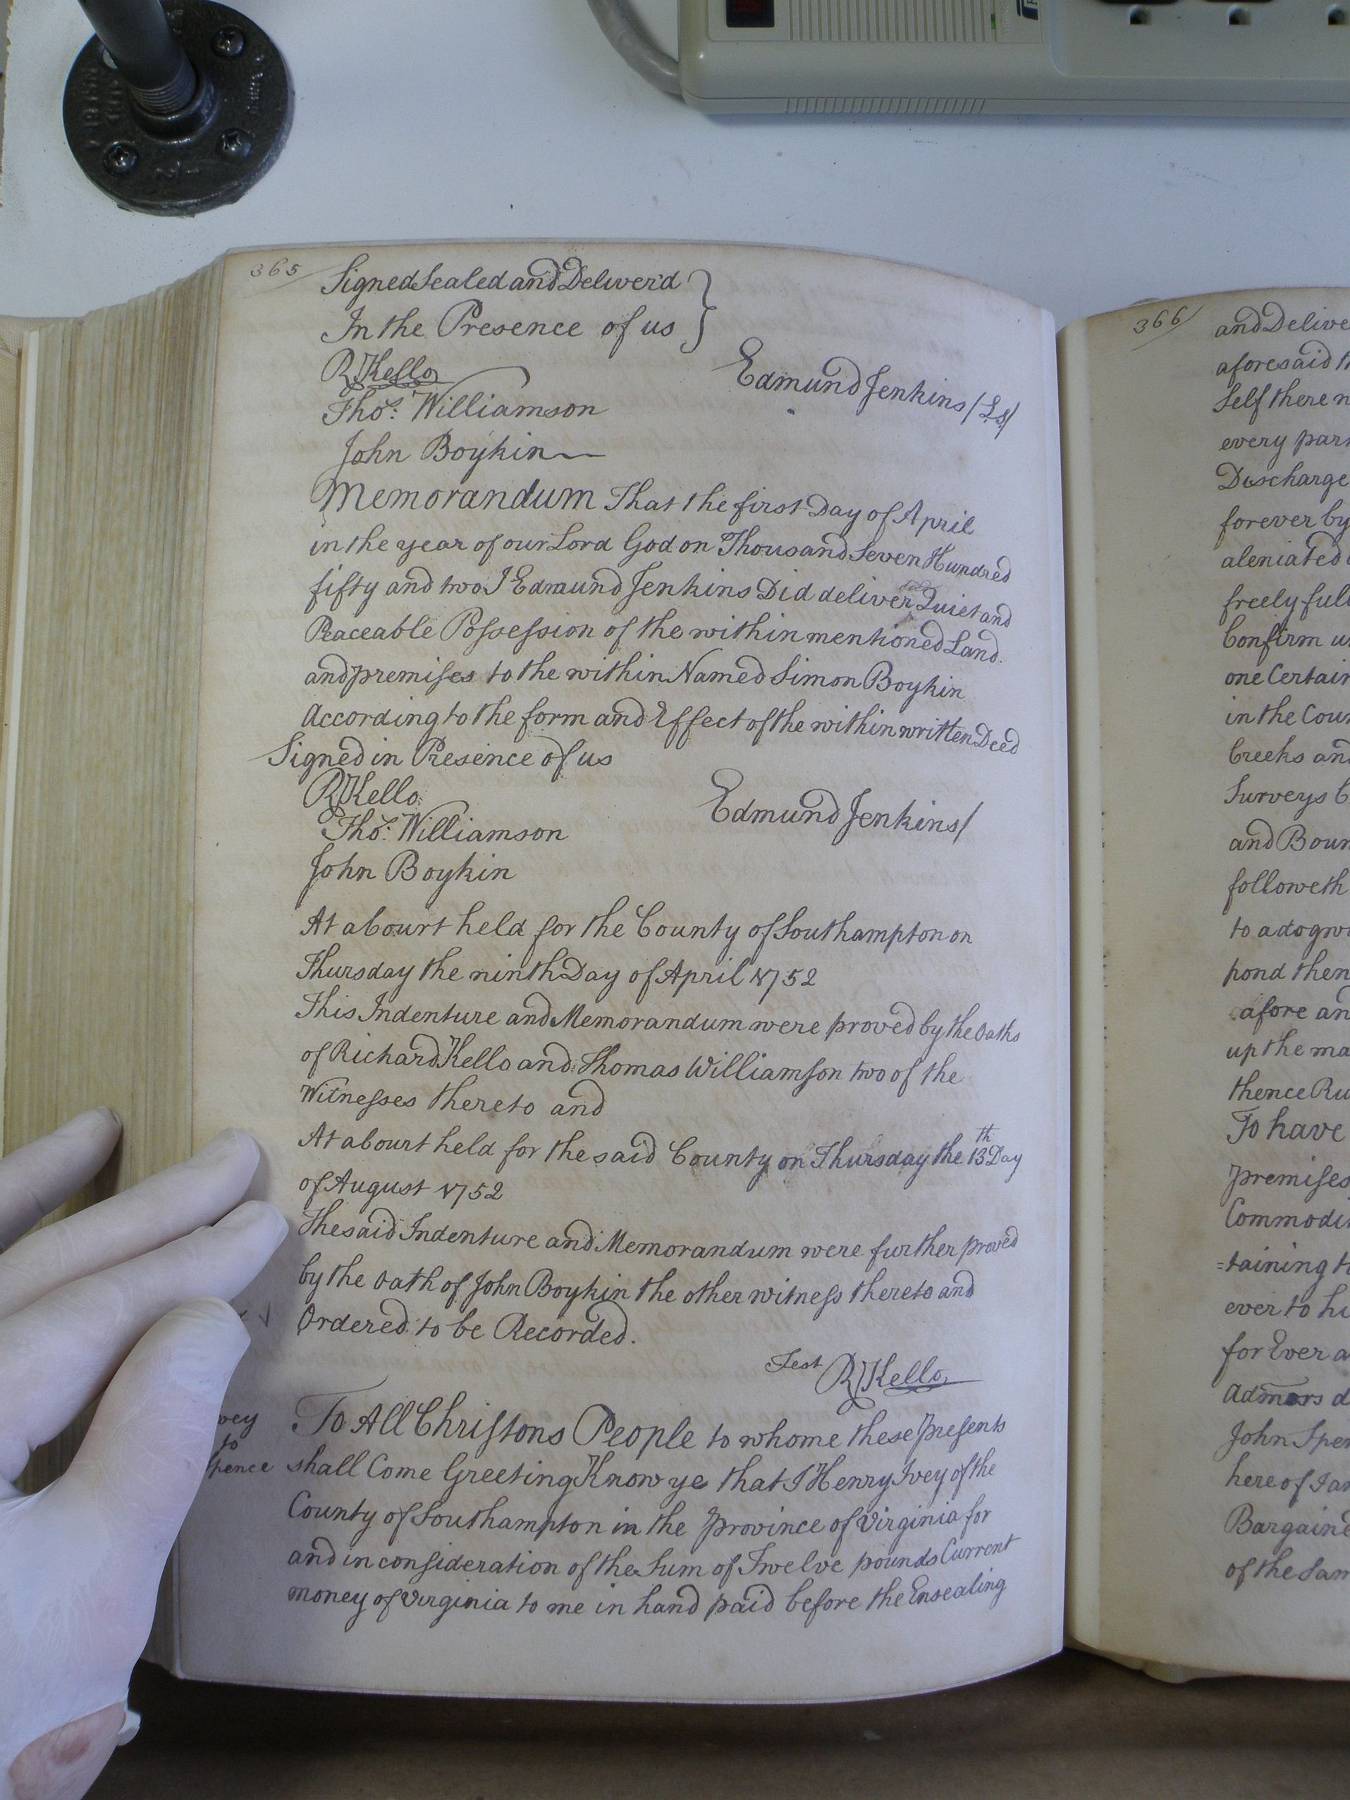 365
Signed Sealed and Deliver'd
In the Presence of us
R Kello
Thos: Williamson
John Boykin
Edmund Jenkins (Ls)
Memorandum That the first Day of April
in the year of our Lord God on Thousand Seven Hundred
fifty and two I Edmund Jenkins Did deliver Quiet and
Peaceable Possession of the within mentioned Land
and premises to the within Named Simon Boykin
According to the form and Effect of the within written Deed
Signed in Presence of us
R Kello
Thos: Williamson
John Boykin
Edmund Jenkins/
At a Court held for the County of Southampton on
Thursday the ninth Day of April 1752
This Indenture and Memorandum were proved by the Oaths
of Richard Kello and Thomas Williamson two of the
Witnesses thereto and
At a Court held for the said County on Thursday the 13th Day
of August 1752
The said Indenture and Memorandum were further proved
by the Oath of John Boykin the other witness thereto and
Ordered to be Recorded.
Test R Kello
vey
to
pence
To All Christons People to whome these presents
shall Come Greeting Know ye that I Henry Ivey of the
County of Southampton in the province of Virginia for
and in consideration of the Sum of Twelve pounds Current
money of Virginia to me in hand paid before the Ensealing
366
and Delive
aforesaid
Self there
every par
Discharge
forever by
aleniated
freely full
Confirm
one Certain
in the Coun
Creeks an
Surveys
and Boun
followeth
to a dogw
pond then
afore an
up the ma
thence Ru
To have
premises
Commodi
=taining
ever to hi
for Ever a
Admors d
John Spen
here of
Bargaine
of the Sam